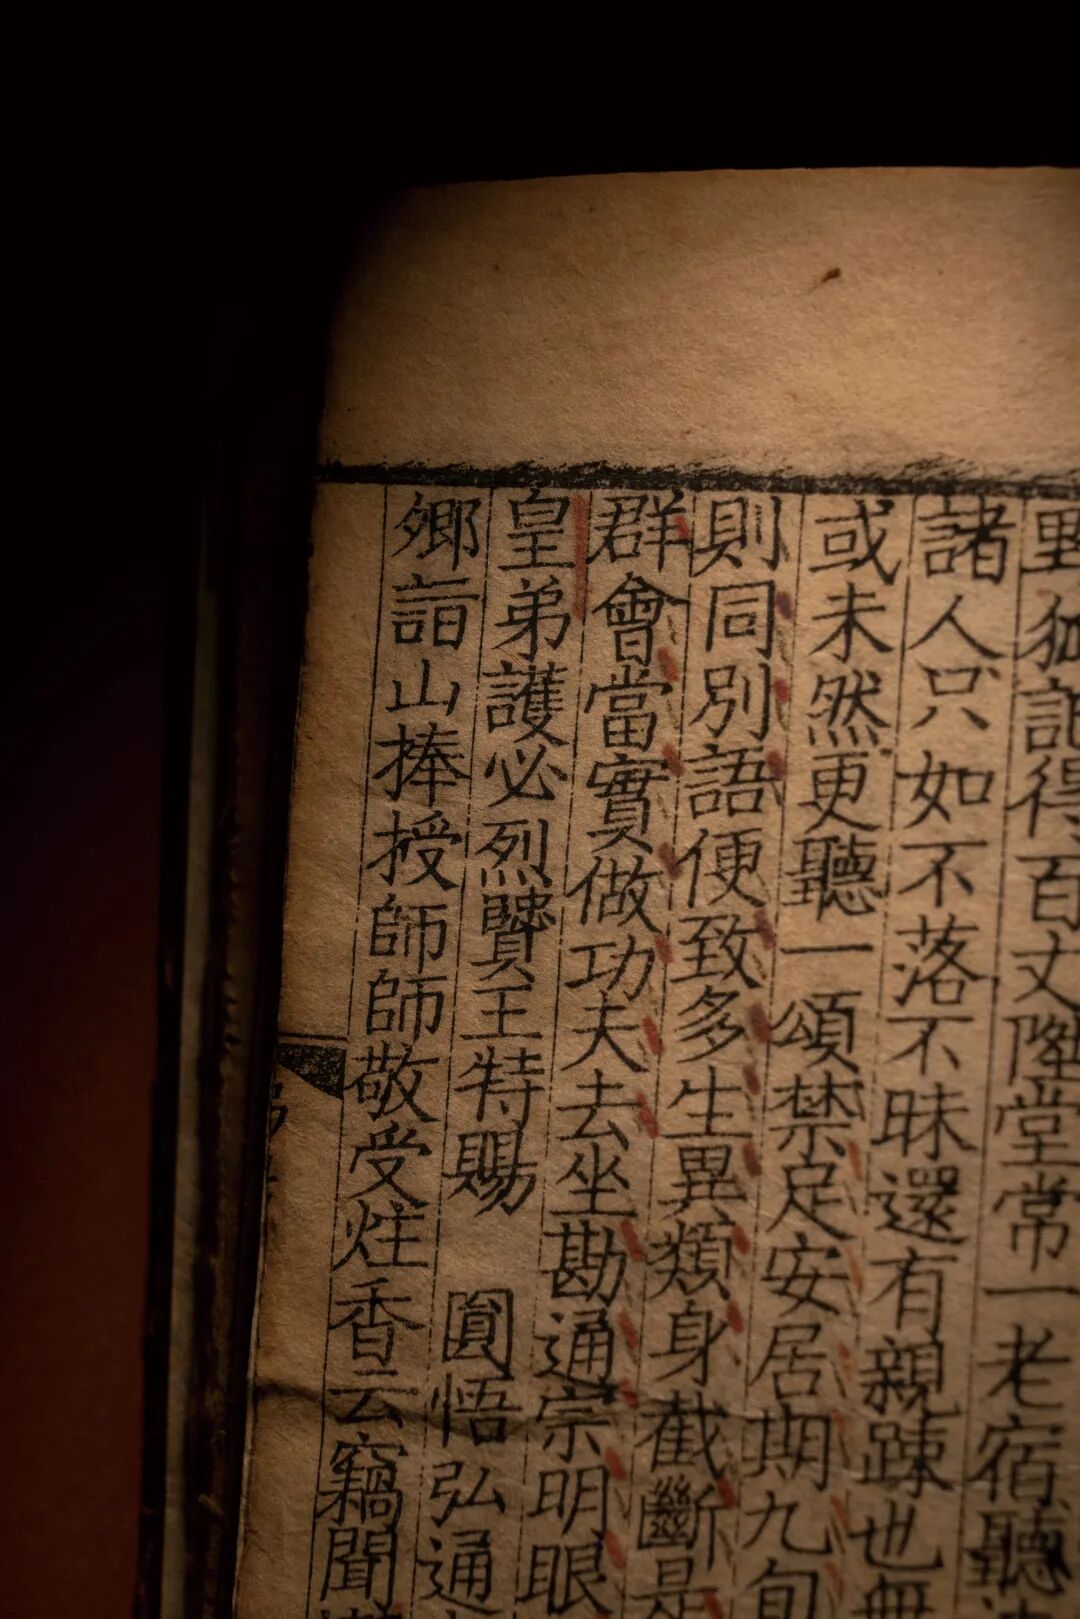 野狐記得百丈陞堂常一老宿聽
諸人只如不落不昧還有親踈也無
或未然更聽一頌禁足安居期九旬
則同別語便致多生異類身截斷是
群會當實做功夫去坐勘通宗明眼
皇弟護必烈賢王特賜　圓悟弘通
鄉詣山捧授師師敬受炷香云竊聞